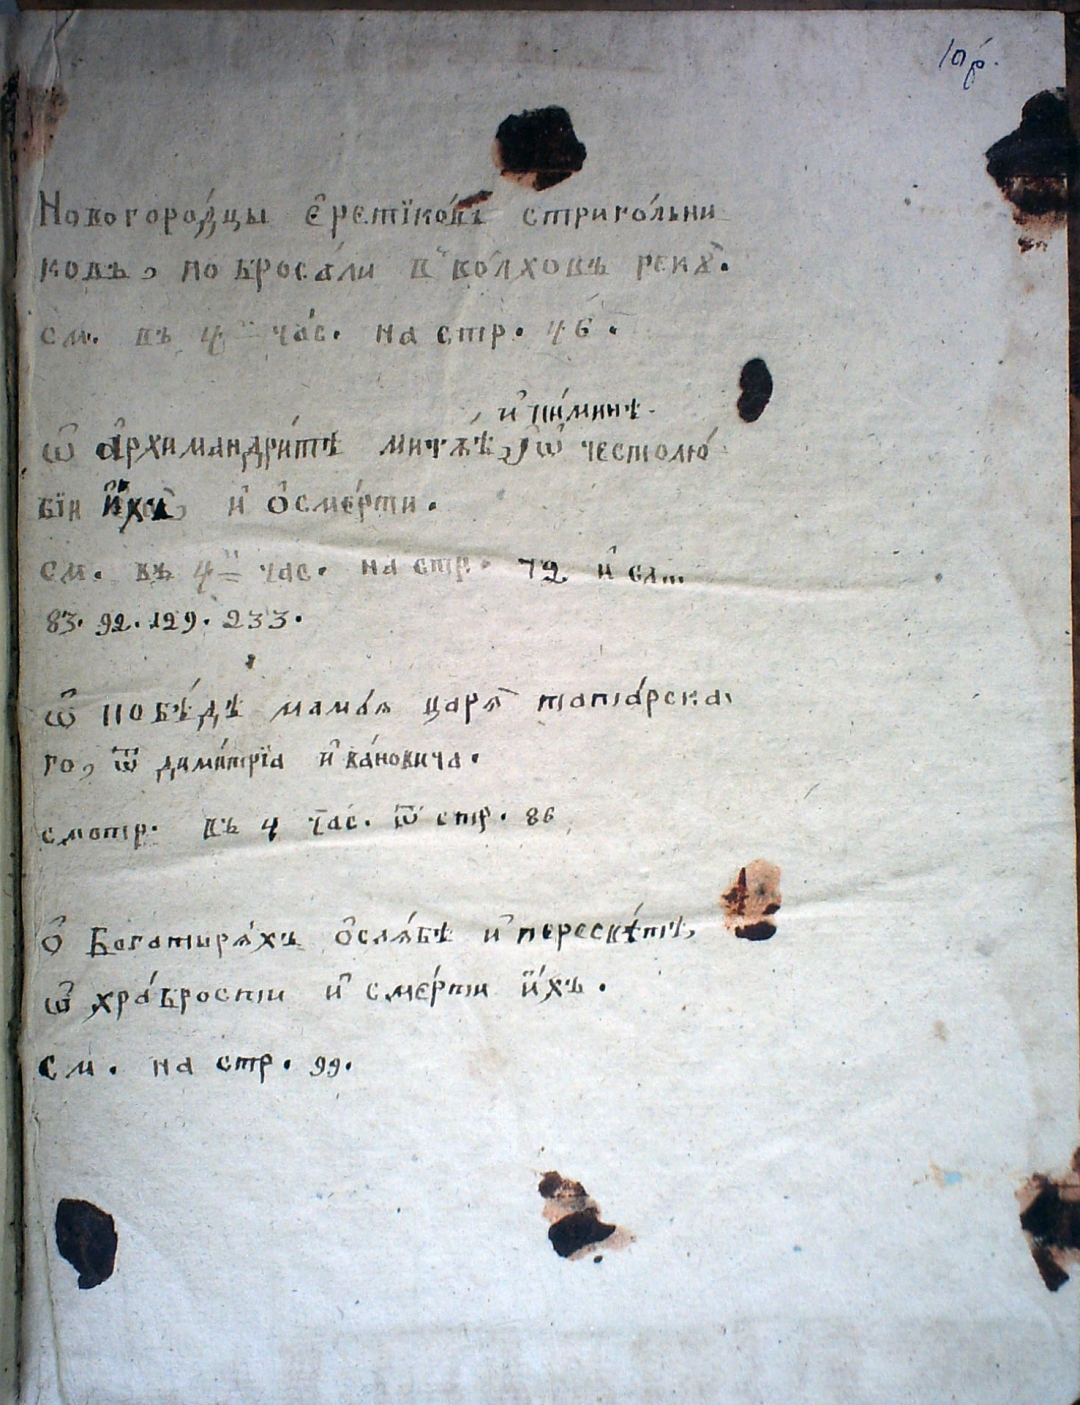 10 р.
Новогоро́дцы є҆ретїко́въ стриго́льни
ковъ, побросали в во́лховъ реку̀.
см. въ 4й ча́с. на стр. 46.
и҆ пи́минѣ.
ѽ а҆рхимандри́тѣ митяѣ, ѽ честолю́
бїи и҆́хъ и҆ о҆смє́рти.
см. въ 4й час. на стр. 72 и҆ слт.
83. 92. 129. 233.
ѽ побѣ́дѣ мама́я царя̀ тата́рска
го, ѿ дими́трїа и҆ва́новича.
смотр. въ 4 час. ѿ стр. 86
о҆ Богатыря́хъ о҆сля́бѣ и҆ пересвѣ́тѣ,
ѽ хра́брости и҆ смє́рти и҆́хъ.
см. на стр. 99.